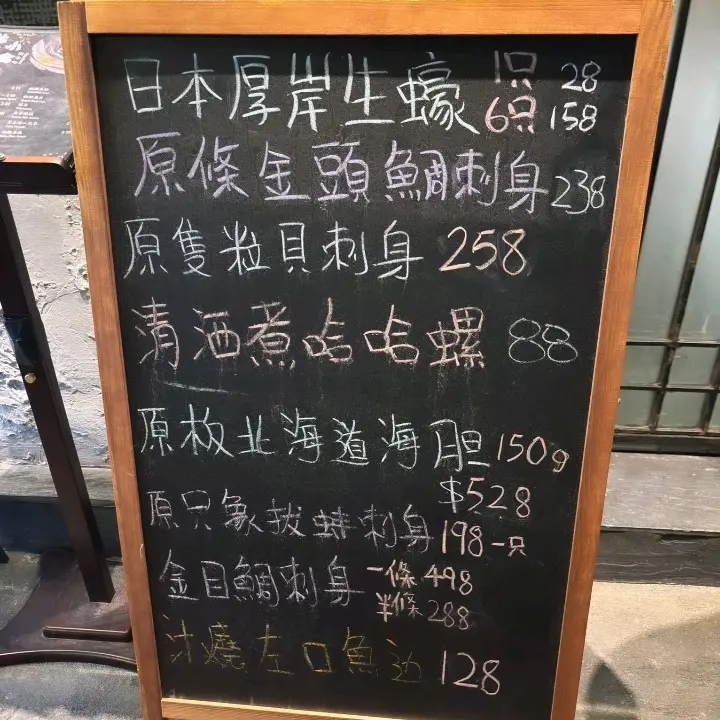 日本厚岸生蠔 1只 28
6只 158
原條金頭鯛刺身 238
原隻粒貝刺身 258
清酒煮哈哈螺 88
原板北海道海胆 150g
$528
原只象拔蚌刺身 198一只
金目鯛刺身 一條 498
半條 288
汁燒左口魚边 128